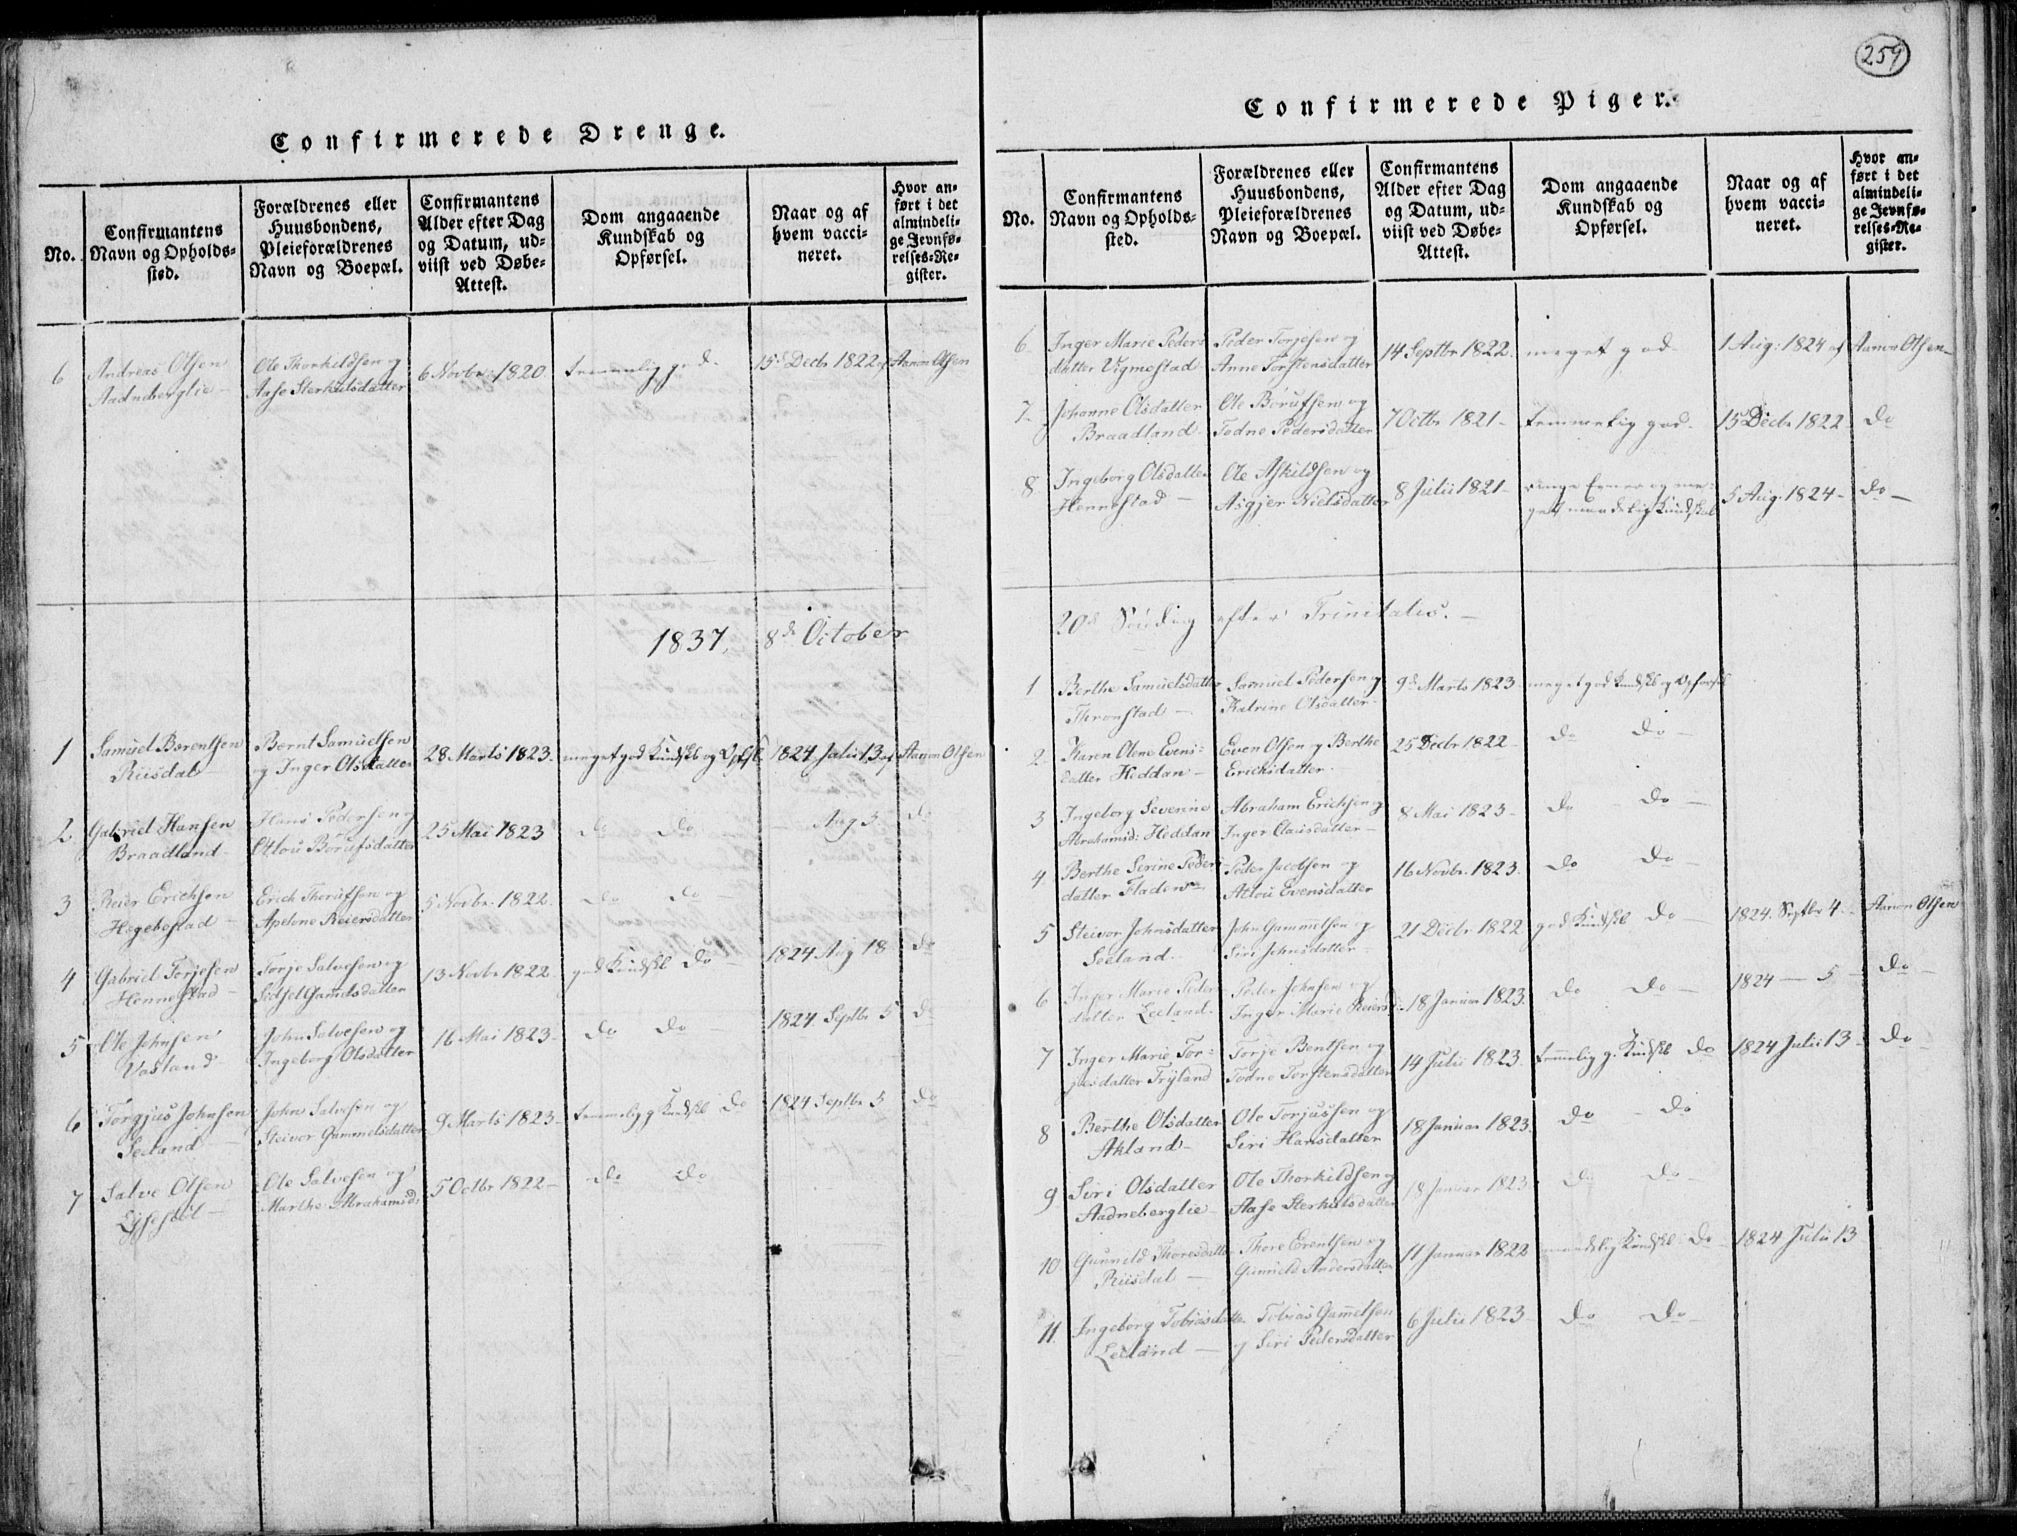 259
Confirmerede Drenge.
No.
Confirmantens
Navn og Opholds-
sted.
Forældrenes eller
Huusbondens,
Pleieforældrenes
Navn og Boepæl.
Confirmantens
Alder efter Dag
og Datum, ud-
viist ved Døbe-
Attest.
Dom angaaende
Kundskab og
Opførsel.
Naar og af
hvem vacci-
neret.
Hvor an-
ført i det
almindeli-
ge Jevnfø-
relses-Re-
gister.
6 Andreas Olsen Ole Thorkildsen og 6 Novbr. 1820 temmelig god. 15de Decbr 1822 af Aanon Olsen
Aadneberglie Aase Sterkulsdatter
1837, 8de October
1 Samuel Berentsen Bernt Samuelsen 28 Marts 1823. meget god Kundsk og Opfsl. 1824 Julii 13 af Aanon Olsen
Riisdal og Inger Olsdatter
2 Gabriel Hansen Hans Pedersen og 25 Mai 1823 do do Aug 3. do
Braadland Atlou Børufsdatter
3 Reier Erichsen Erich Thorufsen og 5 Novbr. 1822. do do
Hegebostad Apelone Reiersdatter
4 Gabriel Torjesen Torje Salvesen og 13 Novbr 1822 god Kundskb do 1824 Aug 18 do
Hennestad Sidsel Gamelsdatter
5 Ole Johnsen John Salvesen og 16 Mai 1823 do do 1824 Septbr 5 do
Vasland Ingeborg Olsdatter
6 Torgjus Johnsen John Salvesen og 9 Marts 1823 temmelig g Kundskb do 1824 Septbr 5 do
Seeland Steivor Gammelsdatter
7 Salve Olsen Ole Salvesen og 5 Octbr 1822 do do
Marthe Abrahamsd:
Confirmerede Piger.
No.
Confirmantens
Navn og Opholds-
sted.
Forældrenes eller
Huusbondens,
Pleieforældrenes
Navn og Boepæl.
Confirmantens
Alder efter Dag
og Datum, ud-
viist ved Døbe-
Attest.
Dom angaaende
Kundskab og
Opførsel.
Naar og af
hvem vacci-
neret.
Hvor an-
ført i det
almindeli-
ge Jevnfø-
relses-Re-
gister.
6 Inger Marie Peders Peder Torjesen og 14 Septbr 1822. meget god 1 Aug: 1824 af Aanon Olsen
datter Vigmostad Anne Torstensdatter
7 Johanne Olsdatter Ole Børufsen og 7 Octbr 1821 temmelig god. 15 Decbr 1822 do
Braadland Todne Pedersdatter
8 Ingeborg Olsdatter Ole Askildsen og 8 Julii 1821 ringe Evner og me- 5 Aug: 1824 do
Hennestad Asgjer Nielsdatter get maadelig Kundskab
20de Søndag efter Trinitatis.
1 Berthe Samuelsdatter Samuel Pedersen og 9de Marts 1823 meget god Kundskb og Opførsel
Thronstad Katrine Olsdatter
2 Karen Olene Evens- Even Olsen og Berthe 25 Decbr 1822 do do
datter Heddan Erichsdatter.
3 Ingeborg Severine Abraham Erichsen og 8 Mai 1823 do do
Abrahamsd: Heddan Inger Clausdatter
4 Berthe Serine Peders Peder Jacobsen og 16 Novbr. 1823. do do
datter Atlou Evensdatter
5 Steivor Johnsdatter John Gammelsen og 21 Decbr 1822 god Kundskb do 1824. Septbr 4. Aanon Olsen
Seeland Siri Johnsdatter
6 Inger Marie Peders Peder Johnsen og 18 Januar 1823. do do 1824 — 5 do
datter Leeland. Inger Marie Reiersd:
7 Inger Marie Tor- Torje Bentsen og 14 Julii 1823 temelig g. Kundskb do 1824 Julii 13 do
jesdatter Tryland Todne Torstensdatter
8 Berthe Olsdatter Ole Torjussen og 18 Januar 1823. do do
Akland Siri Hansdatter
9 Siri Olsdatter Ole Thorkildsen og 18 Januar 1823 do do
Aadneberglie Aase Sterkulsdatter
10 Gunneld Thoresdatter Thore Erentsen og 11 Januar 1822 maadelig Kundskb do 1824 Julii 13
Riisdal Gunneld Andersdatter
11. Ingeborg Tobiasdatter Tobias Gamelsen 6 Julii 1823 do do
Leeland og Siri Pedersdatter